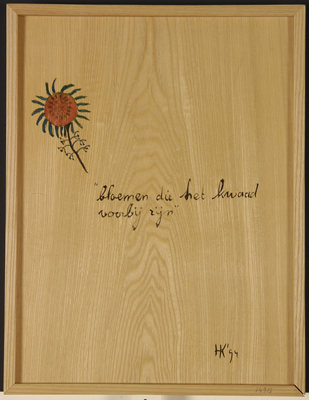 "bloemen die het kwaad
voorbij zijn"
HK'94